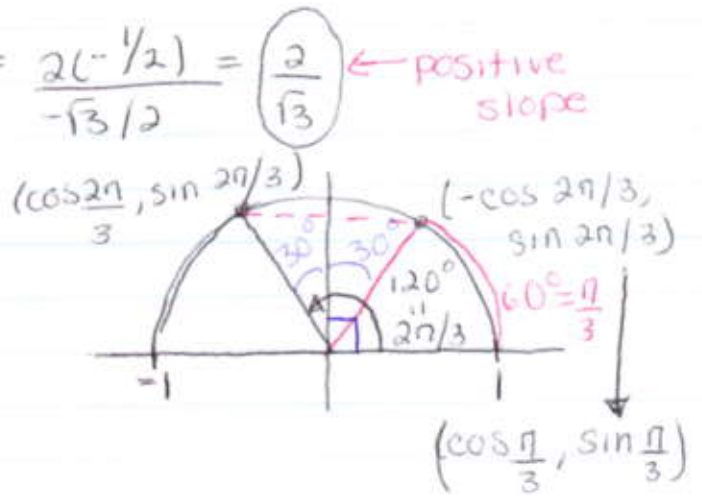 = 2(-1/2) / -√3/2 = 2/√3 ← positive slope
(cos 2π/3, sin 2π/3)
(-cos 2π/3, sin 2π/3)
30° 30°
120°
"
2π/3
60° = π/3
-1
1
(cos π/3, sin π/3)